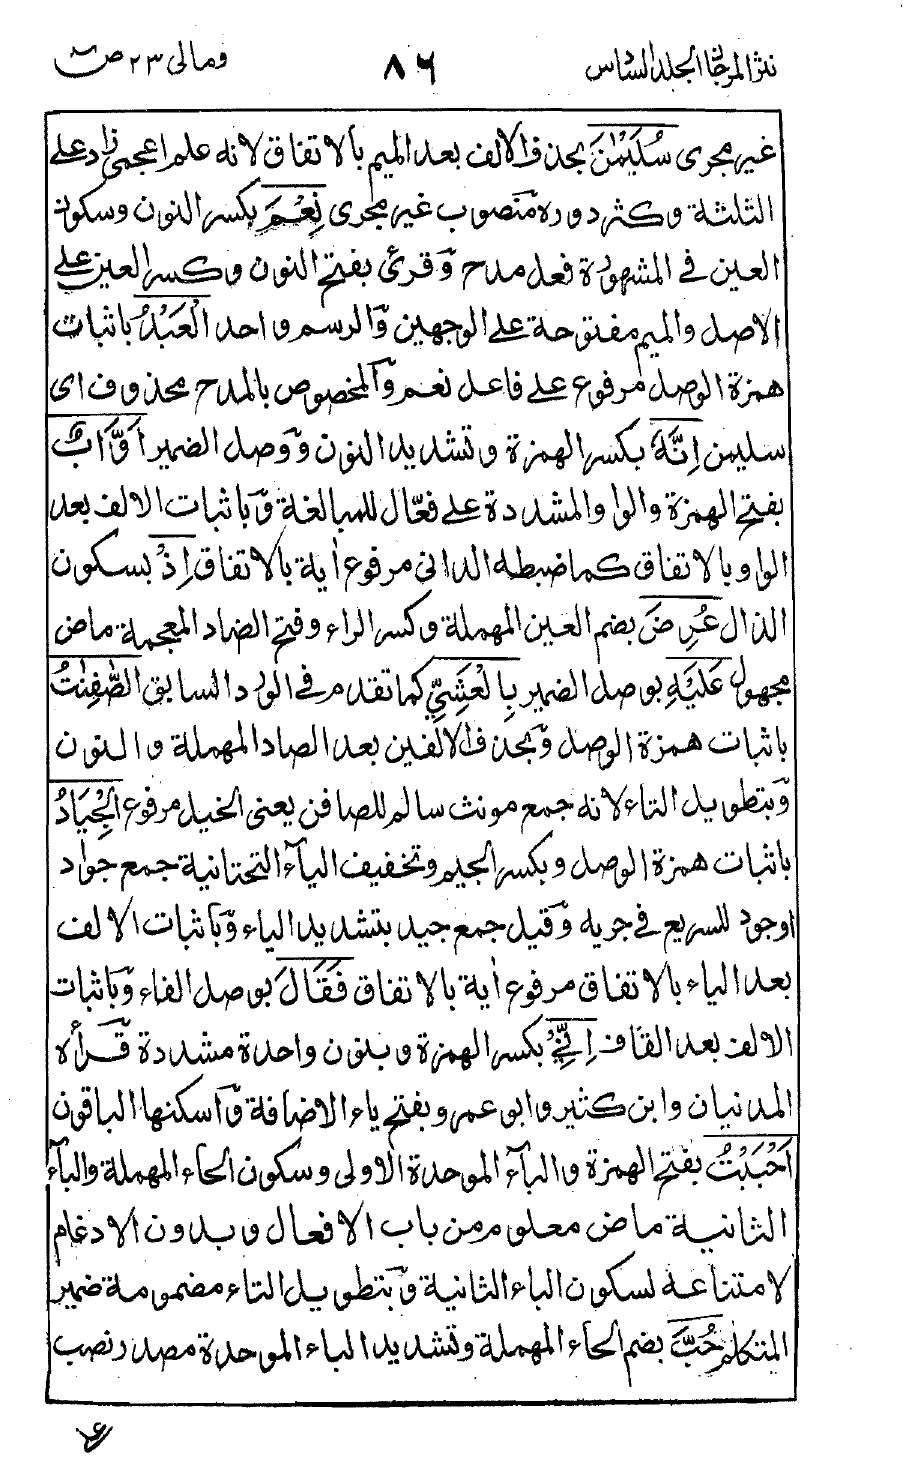 نثر المرجان الجلد السادس ٨٦ ومالی ٢٣ ص
غير مجرى سُلَيْمٰنَ بحذف الالف بعد الميم بالاتفاق لانه علم اعجمى زاد على
الثلثة وكثر دوره منصوب غير مجرى نِعْمَ بكسر النون وسكون
العين فى المشهورة فعل مدح وقرئ بفتح النون وكسر العين على
الاصل والميم مفتوحة على الوجهين والرسم واحد الْعَبْدُ باثبات
همزة الوصل مرفوع على فاعل نعم والمخصوص بالمدح محذوف اى
سليمن اِنَّهٗ بكسر الهمزة وتشديد النون ووصل الضمير اَوَّابٌ
بفتح الهمزة والواو المشددة على فعّال للمبالغة وباثبات الالف بعد
الواو بالاتفاق كما ضبطه الدانى مرفوع اٰية بالاتفاق اِذْ بسكون
الذال عُرِضَ بضم العين المهملة وكسر الراء وفتح الضاد المعجمة ماض
مجهول عَلَيْهِ بوصل الضمير بِالْعَشِىِّ كما تقدم فى الورد السابق الصّٰفِنٰتُ
باثبات همزة الوصل وبحذف الالفين بعد الصاد المهملة والنون
وبتطويل التاء لانه جمع مونث سالم للصافن يعنى الخيل مرفوع الْجِيَادُ
باثبات همزة الوصل وبكسر الجيم وتخفيف الياء التحتانية جمع جواد
اوجود للسريع فى جريه وقيل جمع جيد بتشديد الياء وباثبات الالف
بعد الياء بالاتفاق مرفوع اٰية بالاتفاق فَقَالَ بوصل الفاء وباثبات
الالف بعد القاف اِنِّىْ بكسر الهمزة وبنون واحدة مشددة قرأه
المدنيان وابن كثير وابو عمرو بفتح ياء الاضافة واسكنها الباقون
اَحْبَبْتُ بفتح الهمزة والباء الموحدة الاولى وسكون الحاء المهملة والباء
الثانية ماض معلوم من باب الافعال وبدون الادغام
لامتناعه لسكون الباء الثانية وبتطويل التاء مضمومة ضمير
المتكلم حُبَّ بضم الحاء المهملة وتشديد الباء الموحدة مصدر نصب